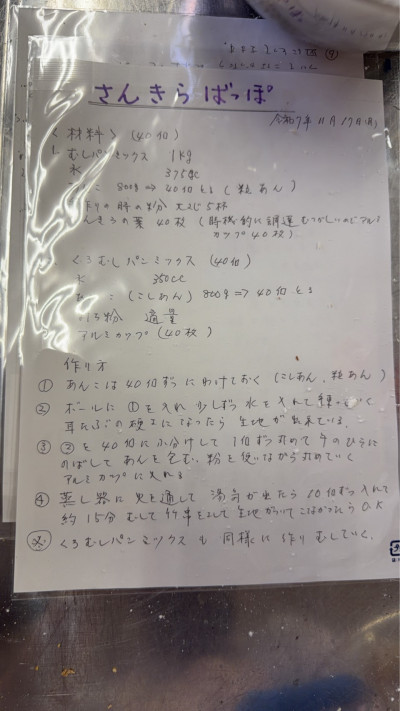 さんきらばっぽ
令和7年11月17日(月)
<材料> (40個)
むしパンミックス 1kg
水 375cc
800g⇒40個とる (粒あん)
作りの時の粉 大さじ5杯
の葉 40枚 (時機的に調達むつかしいのでアルミ
カップ40枚)
くろむしパンミックス (40個)
水 350cc
(こしあん) 800g⇒40個とる
粉 適量
アルミカップ (40枚)
作り方
① あんこは40個ずつにわけておく (こしあん、粒あん)
② ボールに①を入れ少しずつ水を入れて練っていく
耳たぶの硬さになったら生地が出来ている。
③ ②を40個に小分けして1個ずつ丸めて手のひらに
のばしてあんを包む。粉を使いながら丸めていく
アルミカップに入れる
④ 蒸し器に火を通して湯気が出たら10個ずつ入れて
約15分むして竹串をさして生地がついてこなかったらO.K
くろむしパンミックスも同様に作りむしていく。